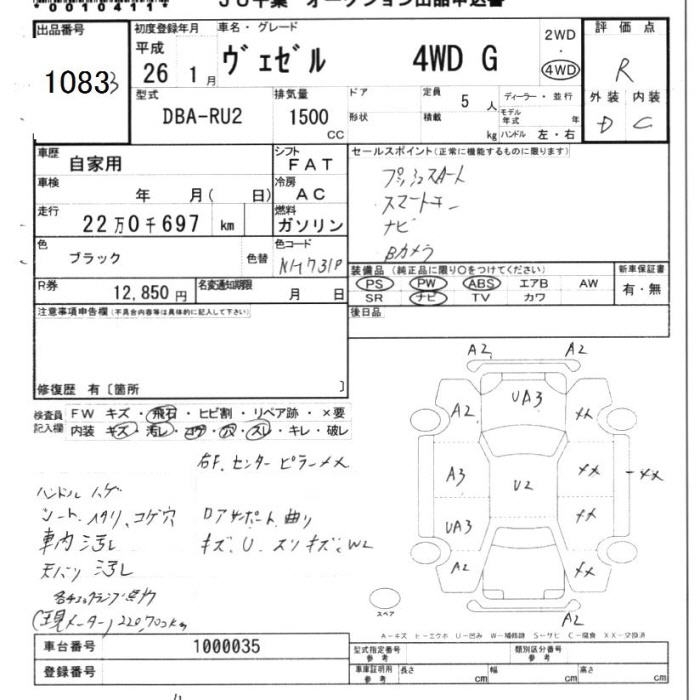 出品番号
10833
初度登録年月
平成
26 1月
車名・グレード
ヴェゼル 4WD G
2WD
・
4WD
評価点
R
外装 内装
D C
型式
DBA-RU2
排気量
1500
CC
ドア
形状
定員 5 人
積載 kg
ディーラー・並行
モデル年式 年
ハンドル 左・右
車歴 自家用
シフト FAT
車検 年 月( 日)
冷房 AC
走行 22万0千697 km
燃料 ガソリン
色 ブラック 色替
色コード NH731P
R券 12,850円
名変通知期限 月 日
セールスポイント(正常に機能するものに限ります)
プッシュスタート
スマートキー
ナビ
Bカメラ
装備品(純正品に限り○をつけてください)
PS PW ABS エアB AW
SR ナビ TV カワ
新車保証書
有・無
後日品
注意事項申告欄(不具合内容等は具体的に記入して下さい)
修復歴 有〔箇所 〕
検査員記入欄
FW キズ・飛石・ヒビ割・リペア跡・×要
内装 キズ・汚レ・コゲ・穴・スレ・キレ・破レ
右F.センターピラーメメ
ハンドル ハゲ
シート.ヘタリ.コゲ穴
車内 汚レ
天バリ 汚レ
ロアサポート.曲リ
キズ.U.スリキズ.W2
各チェックランプ点灯
(現メーター)220,702km
A2 A2
UA3
A2 ××
A3 U2 ×× ××
UA3 ××
A2 ××
A2
スペア
A-キズ E-エクボ U-凹ミ W-補修跡 S-サビ C-腐食 XX-交換済
車台番号 1000035
登録番号
型式指定番号 参考
類別区分番号 参考
車庫証明用 参考 長さ cm 幅 cm 高さ cm